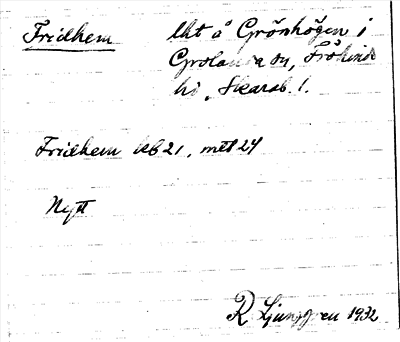 Fridhem lht å Grönhögen i
Grolanda sn, Frökinds
hd, Skarab. l.
Fridhem kb 21, mtl 24
Nytt
R Ljunggren 1932